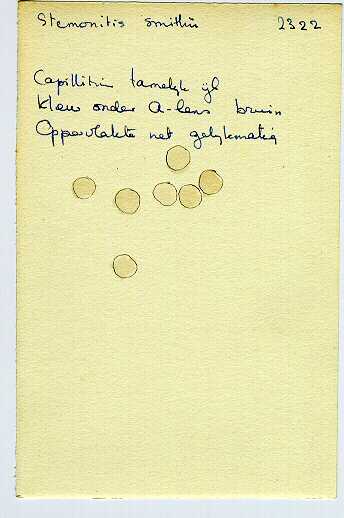 Stemonitis smithii 2322
Capillitium tamelijk ijl
Kleur onder A-lens bruin
Oppervlakte net gelijkmatig